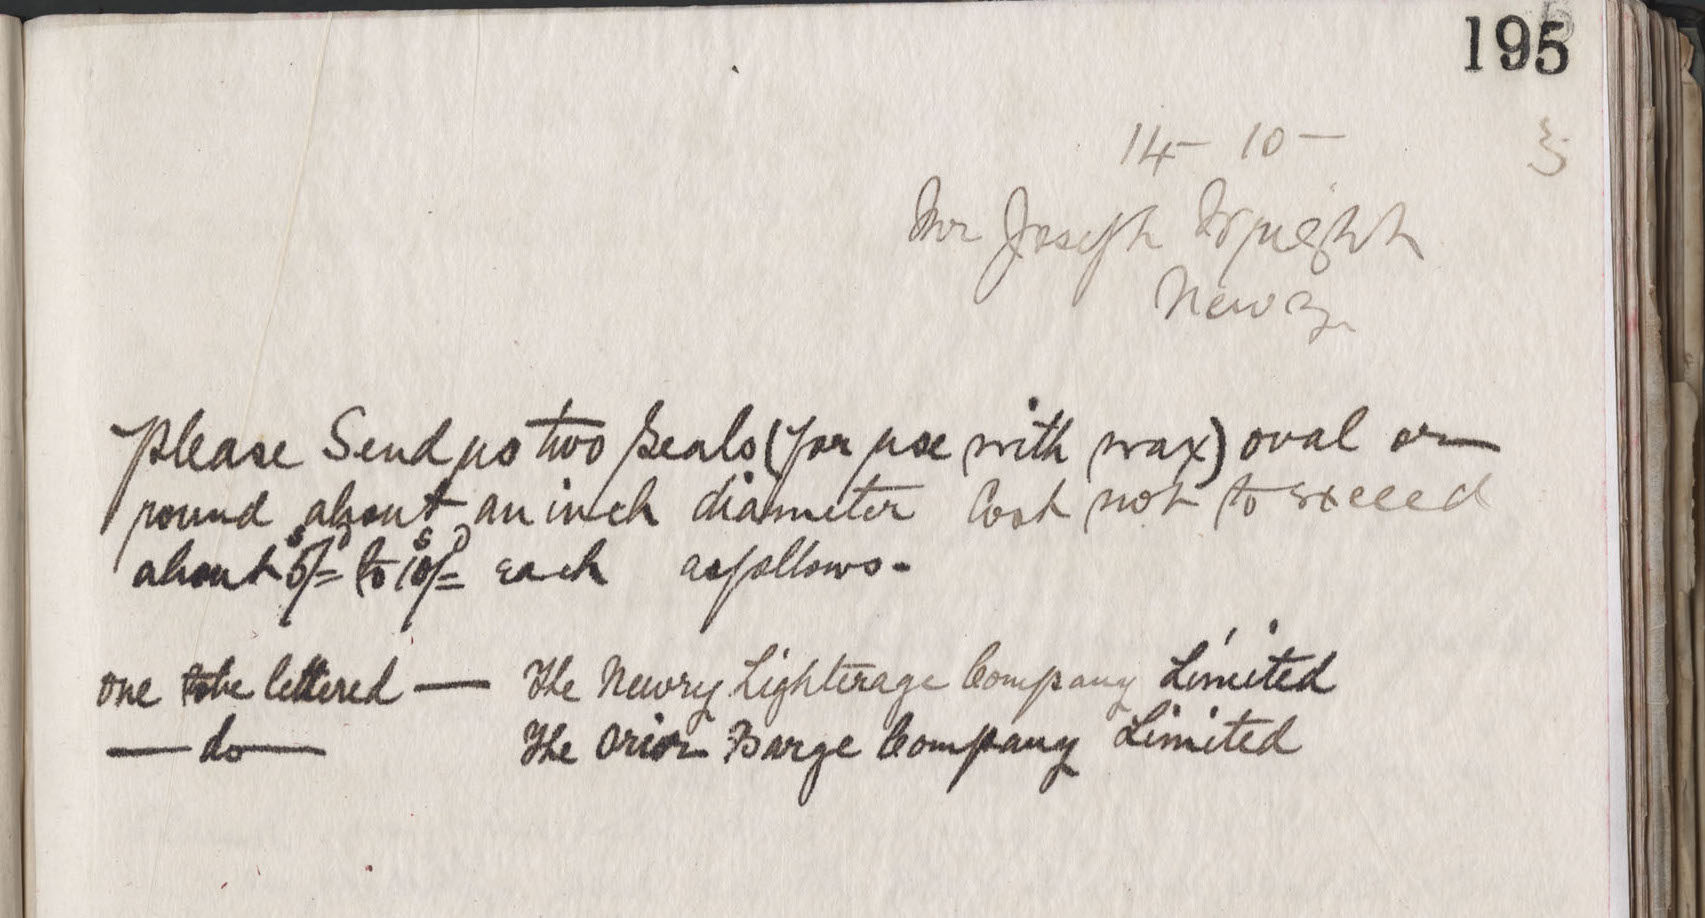 195
14 - 10 -
Mr Joseph Wright
Newry
Please Send us two Seals (for use with wax) oval or
round about an inch diameter Cost not to exceed
about 5/= to 10/= each as follows -
one to be lettered — The Newry Lighterage Company Limited
— do — The Orior Barge Company Limited